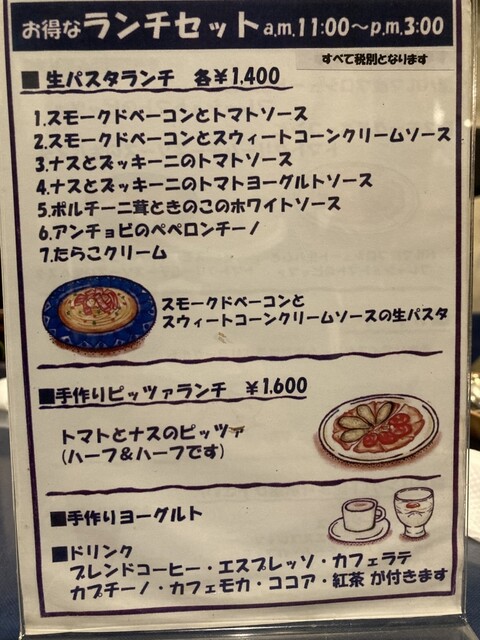 お得なランチセット a.m.11:00～p.m.3:00
すべて税別となります
■生パスタランチ 各¥1,400
1.スモークドベーコンとトマトソース
2.スモークドベーコンとスウィートコーンクリームソース
3.ナスとズッキーニのトマトソース
4.ナスとズッキーニのトマトヨーグルトソース
5.ポルチーニ茸ときのこのホワイトソース
6.アンチョビのペペロンチーノ
7.たらこクリーム
スモークドベーコンと
スウィートコーンクリームソースの生パスタ
■手作りピッツァランチ ¥1,600
トマトとナスのピッツァ
(ハーフ&ハーフです)
■手作りヨーグルト
■ドリンク
ブレンドコーヒー・エスプレッソ・カフェラテ
カプチーノ・カフェモカ・ココア・紅茶 が付きます